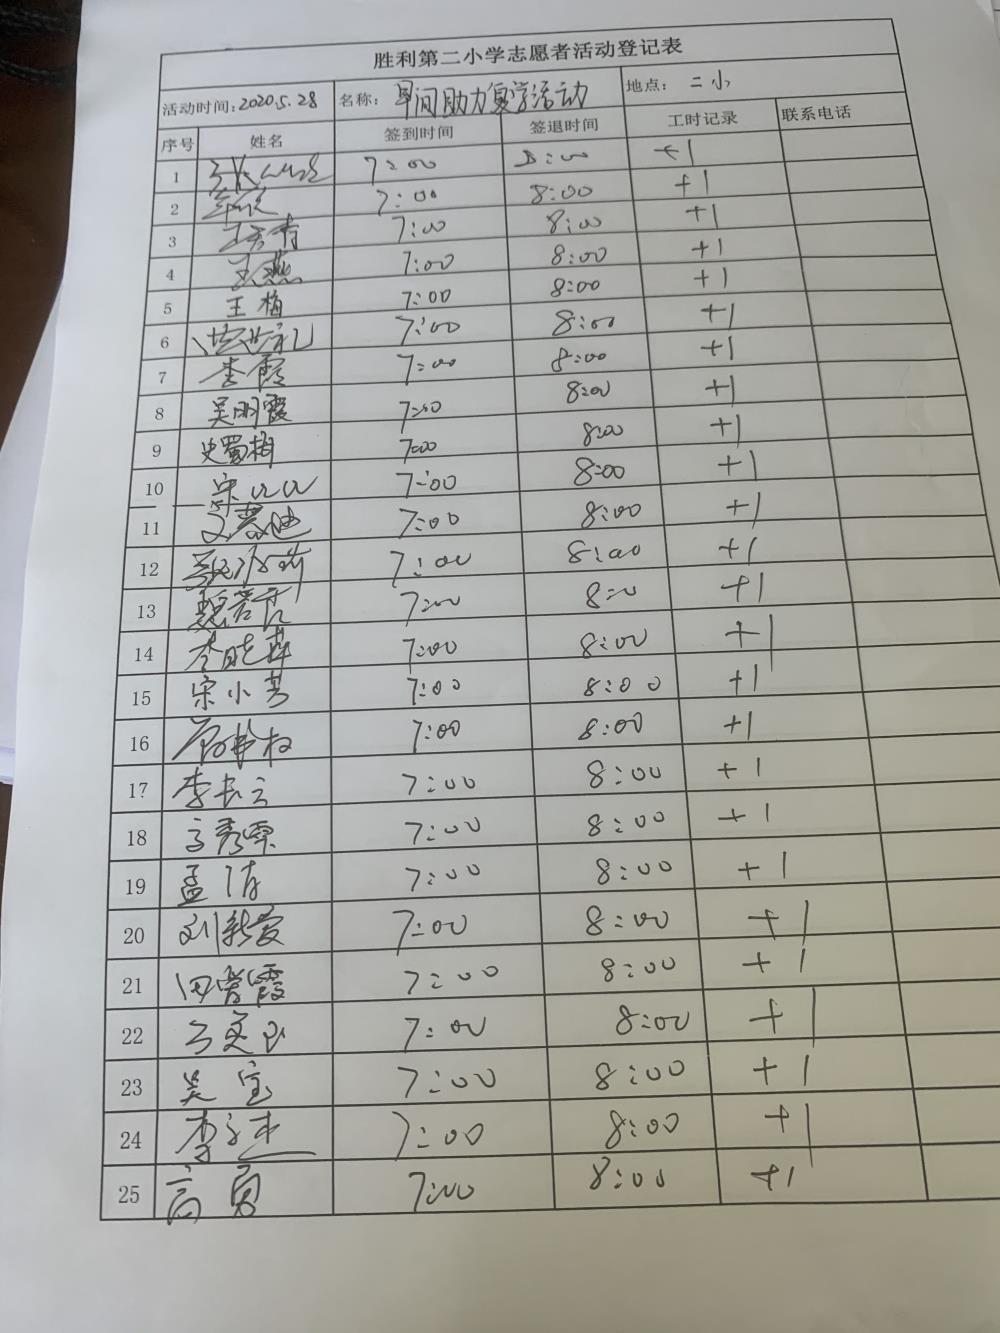 胜利第二小学志愿者活动登记表
活动时间:2020.5.28 名称: 早间助力复学活动 地点: 二小
序号 姓名 签到时间 签退时间 工时记录 联系电话
1 7:00 8:00 +1
2 7:00 8:00 +1
3 7:00 8:00 +1
4 王燕 7:00 8:00 +1
5 王梅 7:00 8:00 +1
6 7:00 8:00 +1
7 李霞 7:00 8:00 +1
8 吴明霞 7:00 8:00 +1
9 史蜀梅 7:00 8:00 +1
10 7:00 8:00 +1
11 7:00 8:00 +1
12 7:00 8:00 +1
13 7:00 8:00 +1
14 李晓萍 7:00 8:00 +1
15 宋小芳 7:00 8:00 +1
16 7:00 8:00 +1
17 李长云 7:00 8:00 +1
18 7:00 8:00 +1
19 孟倩 7:00 8:00 +1
20 刘新爱 7:00 8:00 +1
21 田常霞 7:00 8:00 +1
22 7:00 8:00 +1
23 吴宝 7:00 8:00 +1
24 7:00 8:00 +1
25 高勇 7:00 8:00 +1